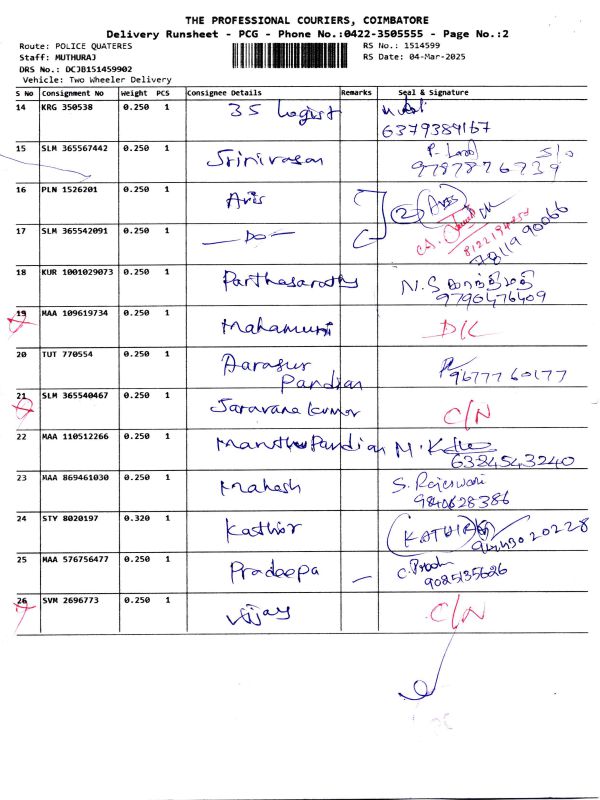 THE PROFESSIONAL COURIERS, COIMBATORE
Delivery Runsheet - PCG - Phone No.:0422-3505555 - Page No.:2
Route: POLICE QUATERES RS No.: 1514599
Staff: MUTHURAJ RS Date: 04-Mar-2025
DRS No.: DCJB151459902
Vehicle: Two Wheeler Delivery
S No Consignment No Weight PCS Consignee Details Remarks Seal & Signature
14 KRG 350538 0.250 1 3S Logist
6379389167
15 SLM 365567442 0.250 1 Srinivasan
9787876739 S/o
16 PLN 1526201 0.250 1 Avis 2 Avis
17 SLM 365542091 0.250 1 — Do —
8122194252
7811990066
18 KUR 1001029073 0.250 1 Parthasarathy N.S காந்திமதி
9790476409
19 MAA 109619734 0.250 1 Mahamuni D/L
20 TUT 770554 0.250 1 Aarasur
Pandian 9677760177
21 SLM 365540467 0.250 1 Saravana kumar C/N
22 MAA 110512266 0.250 1 Pandian M.
6324543240
23 MAA 869461030 0.250 1 Mahesh S. Rajeswari
9840628386
24 STY 8020197 0.320 1 Kathir KATHIR
25 MAA 576756477 0.250 1 Pradeepa —
9025135626
26 SVM 2696773 0.250 1 Vijay C/N